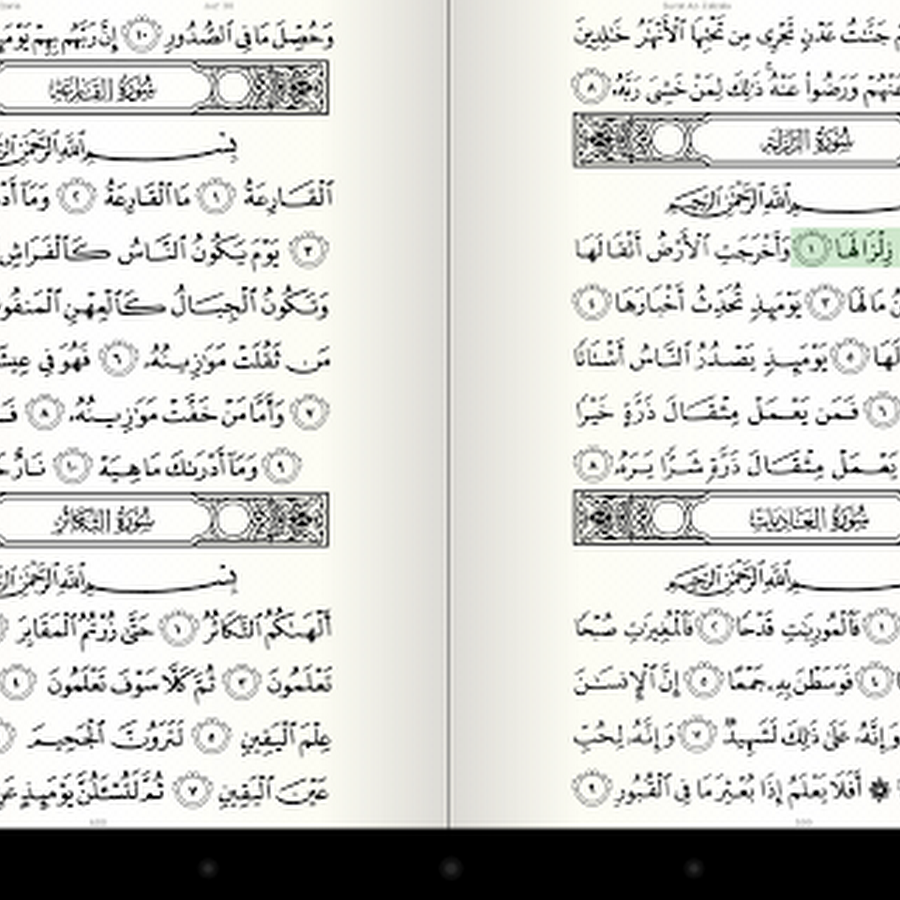 جَنَّٰتُ عَدْنٍ تَجْرِى مِن تَحْتِهَا ٱلْأَنْهَٰرُ خَٰلِدِينَ
عَنْهُمْ وَرَضُوا۟ عَنْهُ ۚ ذَٰلِكَ لِمَنْ خَشِىَ رَبَّهُۥ ٨
سُورَةُ الزَّلْزَلَةِ
ٱللَّهِ ٱلرَّحْمَٰنِ ٱلرَّحِيمِ
زِلْزَالَهَا ١ وَأَخْرَجَتِ ٱلْأَرْضُ أَثْقَالَهَا
مَا لَهَا ٣ يَوْمَئِذٍ تُحَدِّثُ أَخْبَارَهَا ٤
٥ يَوْمَئِذٍ يَصْدُرُ ٱلنَّاسُ أَشْتَاتًا
٦ فَمَن يَعْمَلْ مِثْقَالَ ذَرَّةٍ خَيْرًا
يَعْمَلْ مِثْقَالَ ذَرَّةٍ شَرًّا يَرَهُۥ ٨
سُورَةُ العَادِيَاتِ
ٱللَّهِ ٱلرَّحْمَٰنِ ٱلرَّحِيمِ
١ فَٱلْمُورِيَٰتِ قَدْحًا ٢ فَٱلْمُغِيرَٰتِ صُبْحًا
٤ فَوَسَطْنَ بِهِۦ جَمْعًا ٥ إِنَّ ٱلْإِنسَٰنَ
وَإِنَّهُۥ عَلَىٰ ذَٰلِكَ لَشَهِيدٌ ٧ وَإِنَّهُۥ لِحُبِّ
۞ أَفَلَا يَعْلَمُ إِذَا بُعْثِرَ مَا فِى ٱلْقُبُورِ ٩
وَحُصِّلَ مَا فِى ٱلصُّدُورِ ١٠ إِنَّ رَبَّهُم بِهِمْ
سُورَةُ القَارِعَةِ
بِسْمِ ٱللَّهِ ٱلرَّحْمَٰنِ
ٱلْقَارِعَةُ ١ مَا ٱلْقَارِعَةُ ٢ وَمَآ
٣ يَوْمَ يَكُونُ ٱلنَّاسُ كَٱلْفَرَاشِ
وَتَكُونُ ٱلْجِبَالُ كَٱلْعِهْنِ
مَن ثَقُلَتْ مَوَٰزِينُهُۥ ٦ فَهُوَ فِى
٧ وَأَمَّا مَنْ خَفَّتْ مَوَٰزِينُهُۥ ٨
٩ وَمَآ أَدْرَىٰكَ مَا هِيَهْ ١٠ نَارٌ
سُورَةُ التَّكَاثُرِ
بِسْمِ ٱللَّهِ ٱلرَّحْمَٰنِ
أَلْهَىٰكُمُ ٱلتَّكَاثُرُ ١ حَتَّىٰ زُرْتُمُ ٱلْمَقَابِرَ
تَعْلَمُونَ ٣ ثُمَّ كَلَّا سَوْفَ تَعْلَمُونَ ٤
عِلْمَ ٱلْيَقِينِ ٥ لَتَرَوُنَّ ٱلْجَحِيمَ
عَيْنَ ٱلْيَقِينِ ٧ ثُمَّ لَتُسْـَٔلُنَّ يَوْمَئِذٍ عَنِ